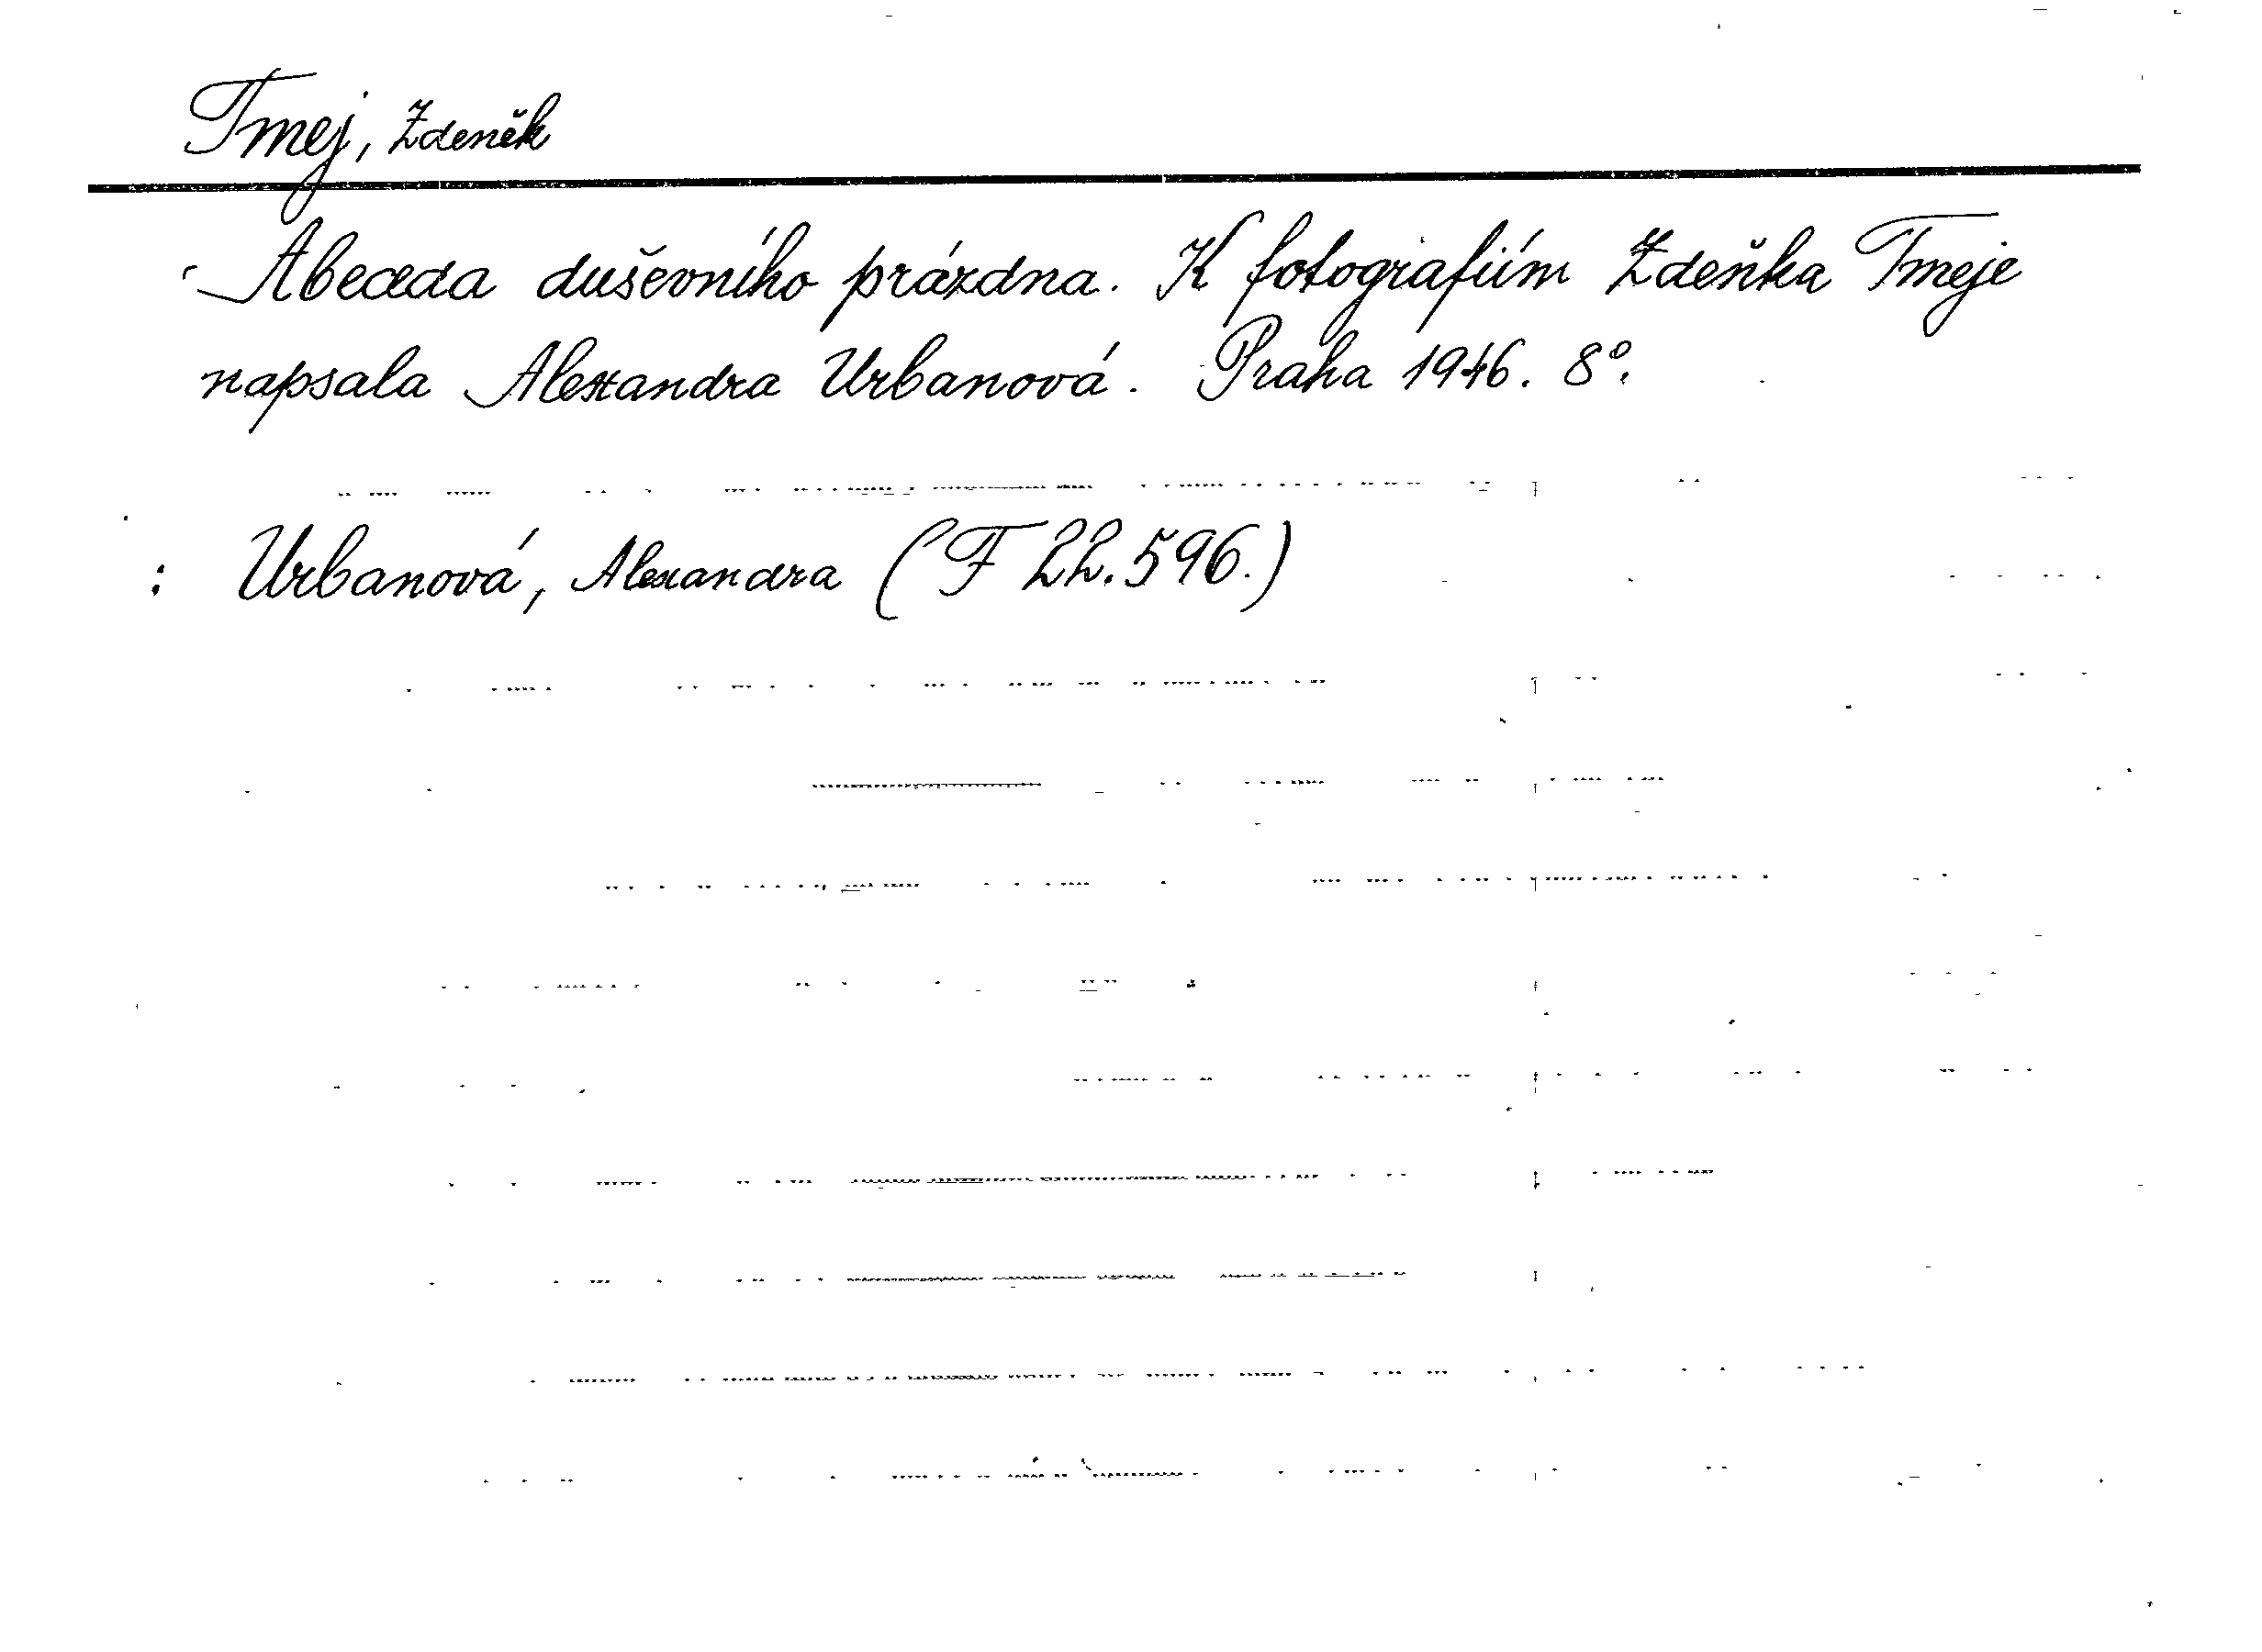 Tmej, Zdeněk
Abeceda duševního prázdna. K fotografiím Zdeňka Tmeje
napsala Alexandra Urbanová. Praha 1946. 8°.
: Urbanová, Alexandra (F 22.596.)